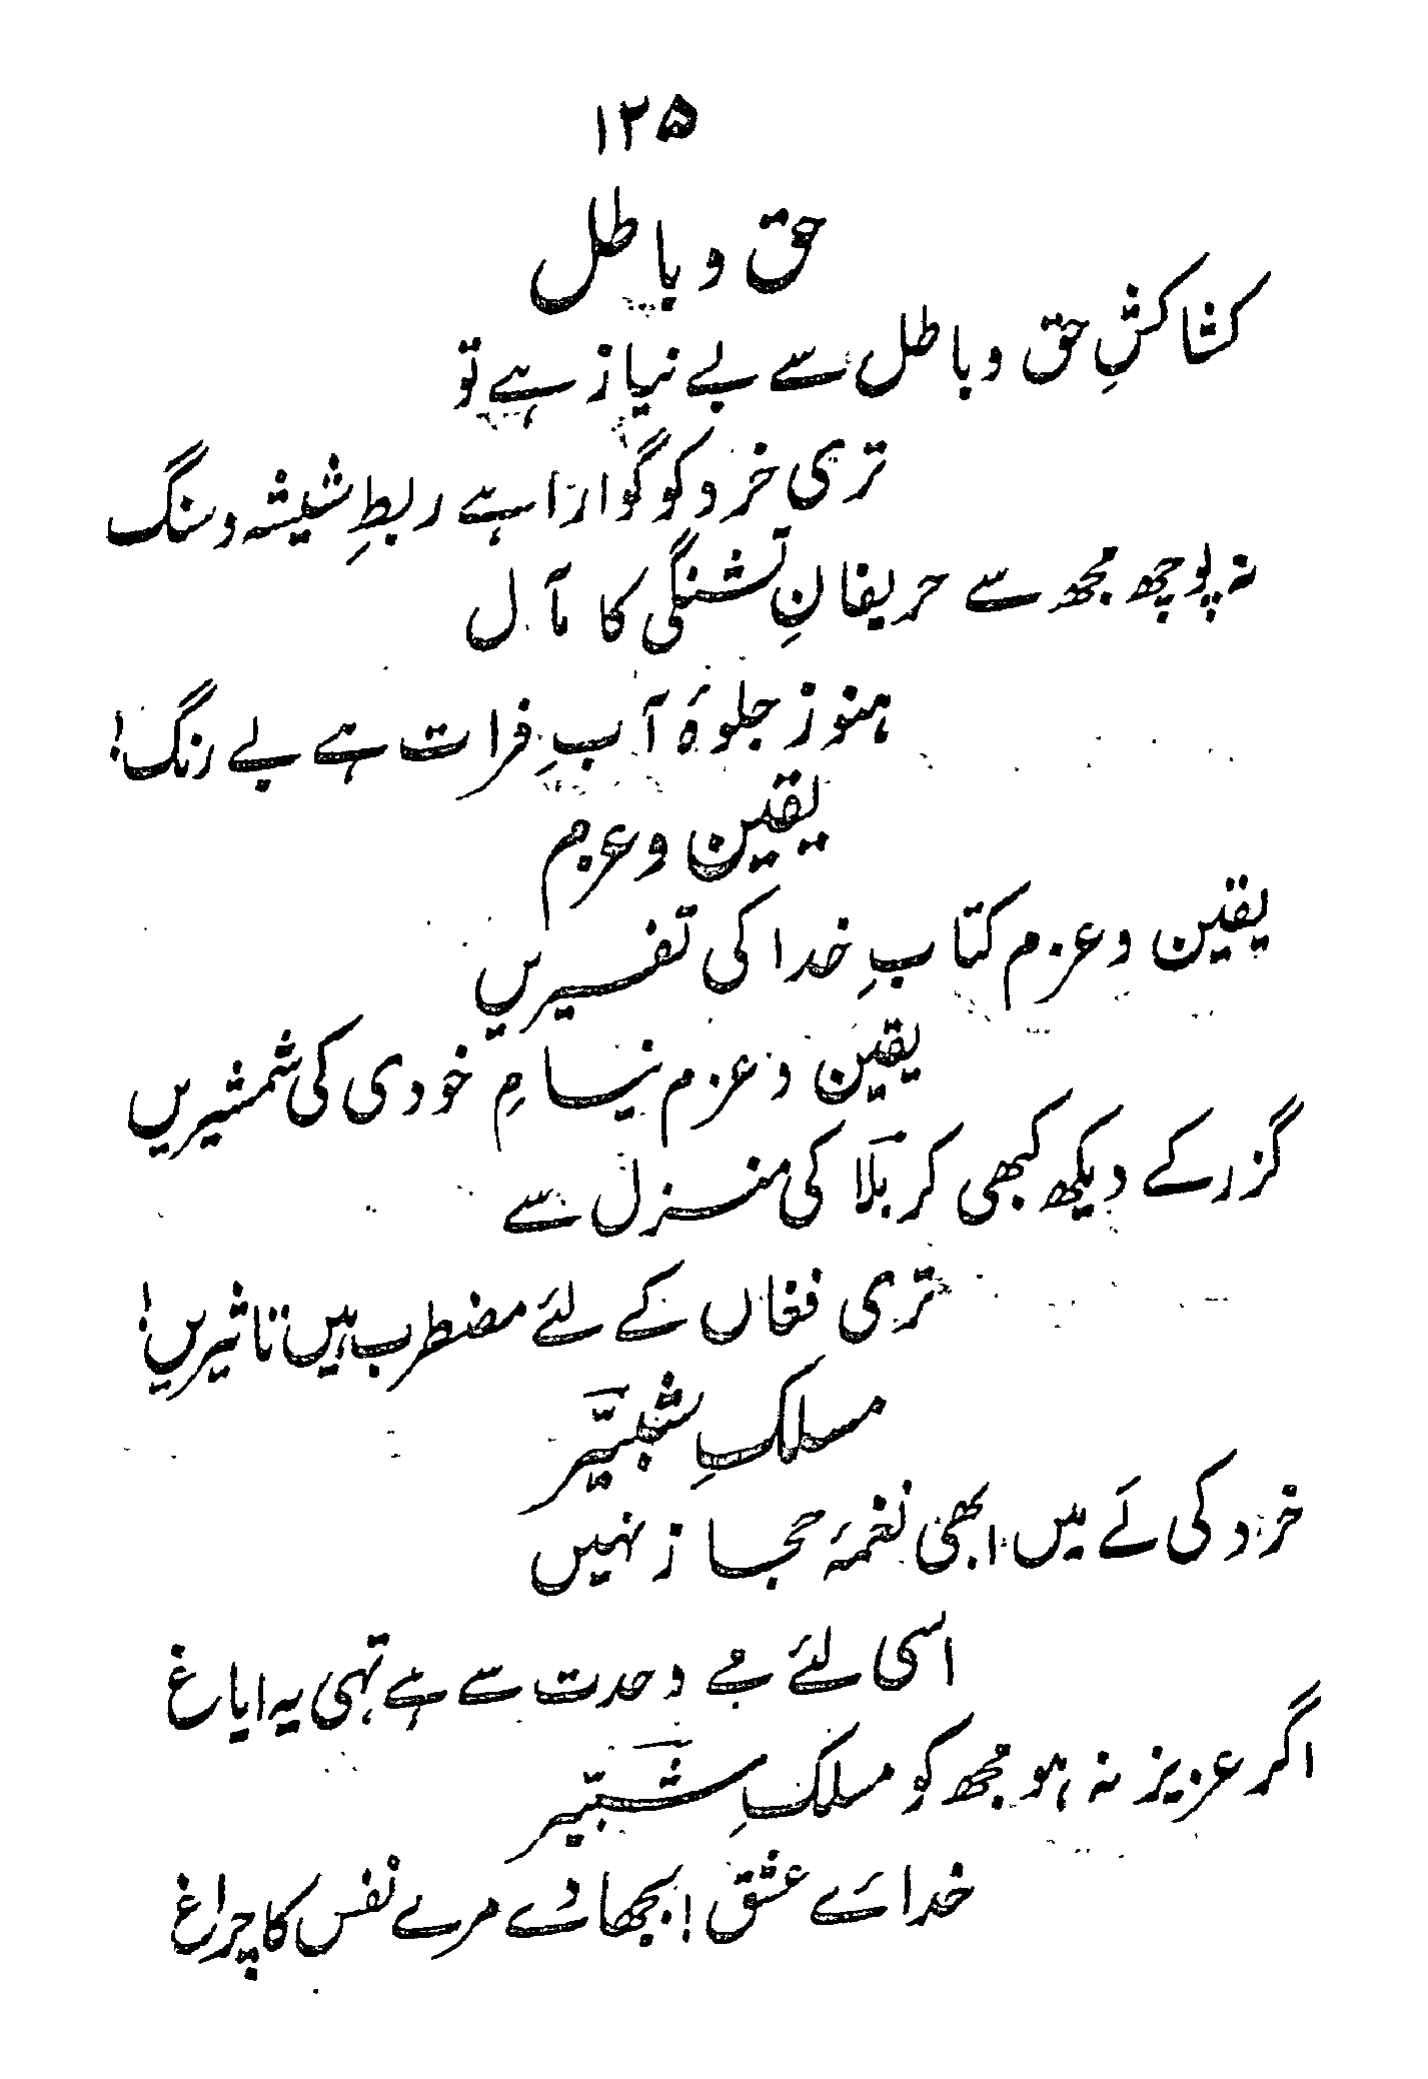 ۱۲۵
حق و باطل
کشاکشِ حق و باطل سے بے نیاز ہے تو
تری خرد کو گوارا ہے ربطِ شیشہ و سنگ
نہ پوچھ مجھ سے حریفانِ تشنگی کا مآل
ہنوز جلوۂ آبِ فرات ہے بے رنگ!
یقین و عزم
یقین و عزم کتابِ خدا کی تفسیریں
یقین و عزم نیامِ خودی کی شمشیریں
گزر کے دیکھ کبھی کربلا کی منزل سے
تری فغاں کے لئے مضطرب ہیں تاثیریں!
مسلکِ شبّیر
خرد کی لَے میں ابھی نغمۂ حجاز نہیں
اسی لئے مے وحدت سے ہے تہی یہ ایاغ
اگر عزیز نہ ہو مجھ کو مسلکِ شبّیر
خدائے عشق! بجھا دے مرے نفس کا چراغ